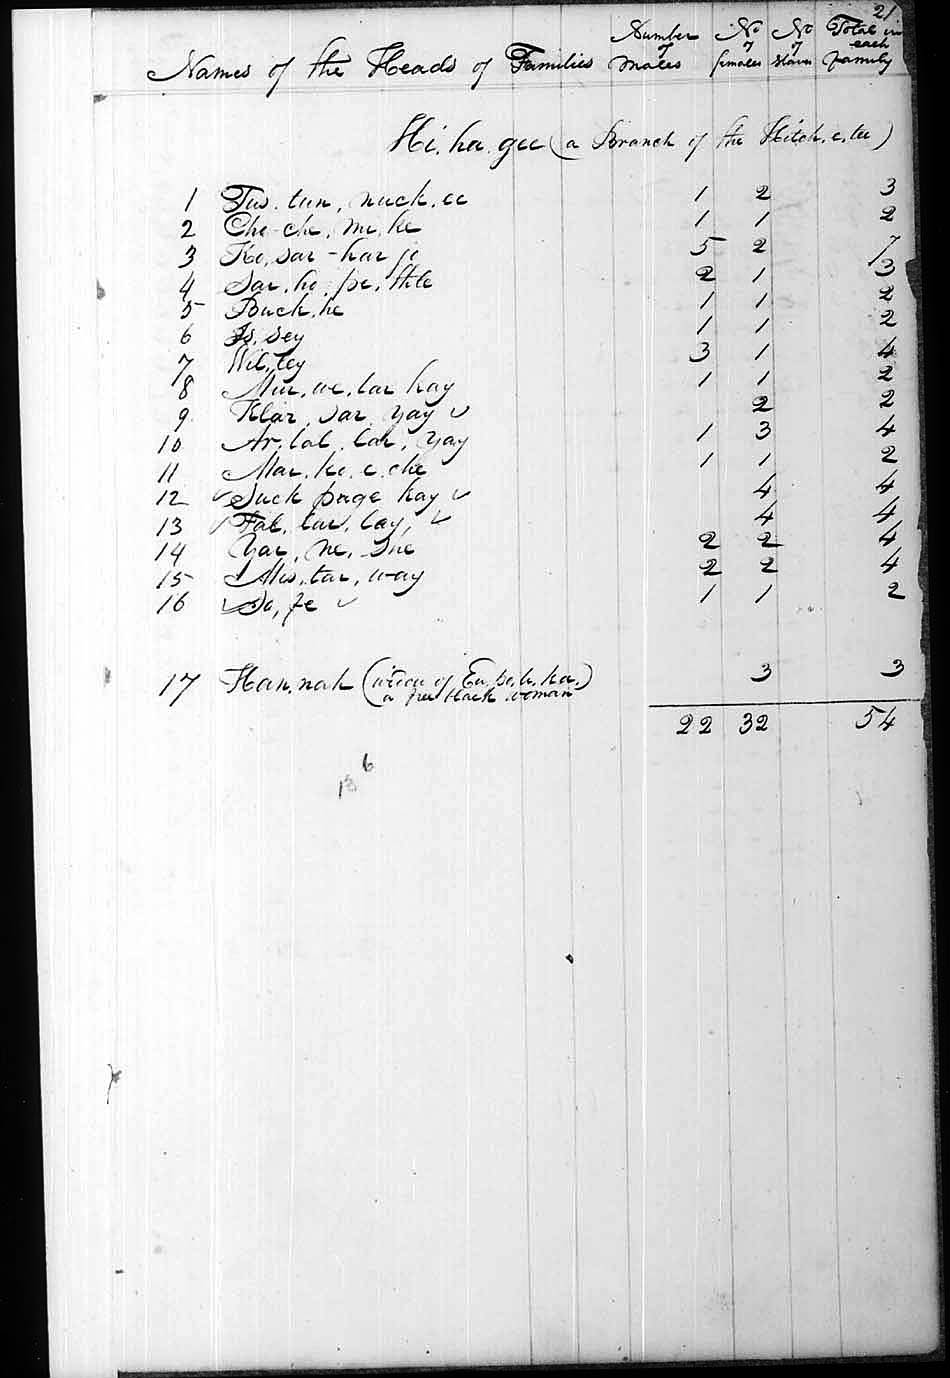 21
Names of the Heads of Families Number of Males No of females No of Slaves Total in each family
Hi, ha, gee (a Branch of the Hitch, e, tee)
1 Tus, tun, nuck, ee 1 2 3
2 Cho-che, mi, ke 1 1 2
3 Ko, sar-har jo 5 2 7
4 Sar, ho, pi, thle 2 1 3
5 Buck, he 1 1 2
6 Is, sey 1 1 2
7 Wil, ley 3 1 4
8 Mur, we, lar kay 1 1 2
9 Klar, sar, yay ✓ 2 2
10 Ar, lal, lar, yay 1 3 4
11 Mar, ko, e, che 1 1 2
12 ✓ Suck page hay ✓ 4 4
13 ✓ Fal, lar, lay, ✓ 4 4
14 Yar, ne, she 2 2 4
15 Mis, tar, way 2 2 4
16 ✓ So, fe ✓ 1 1 2
17 Han, nah (widow of 3 3
a free black woman
22 32 54
13 6